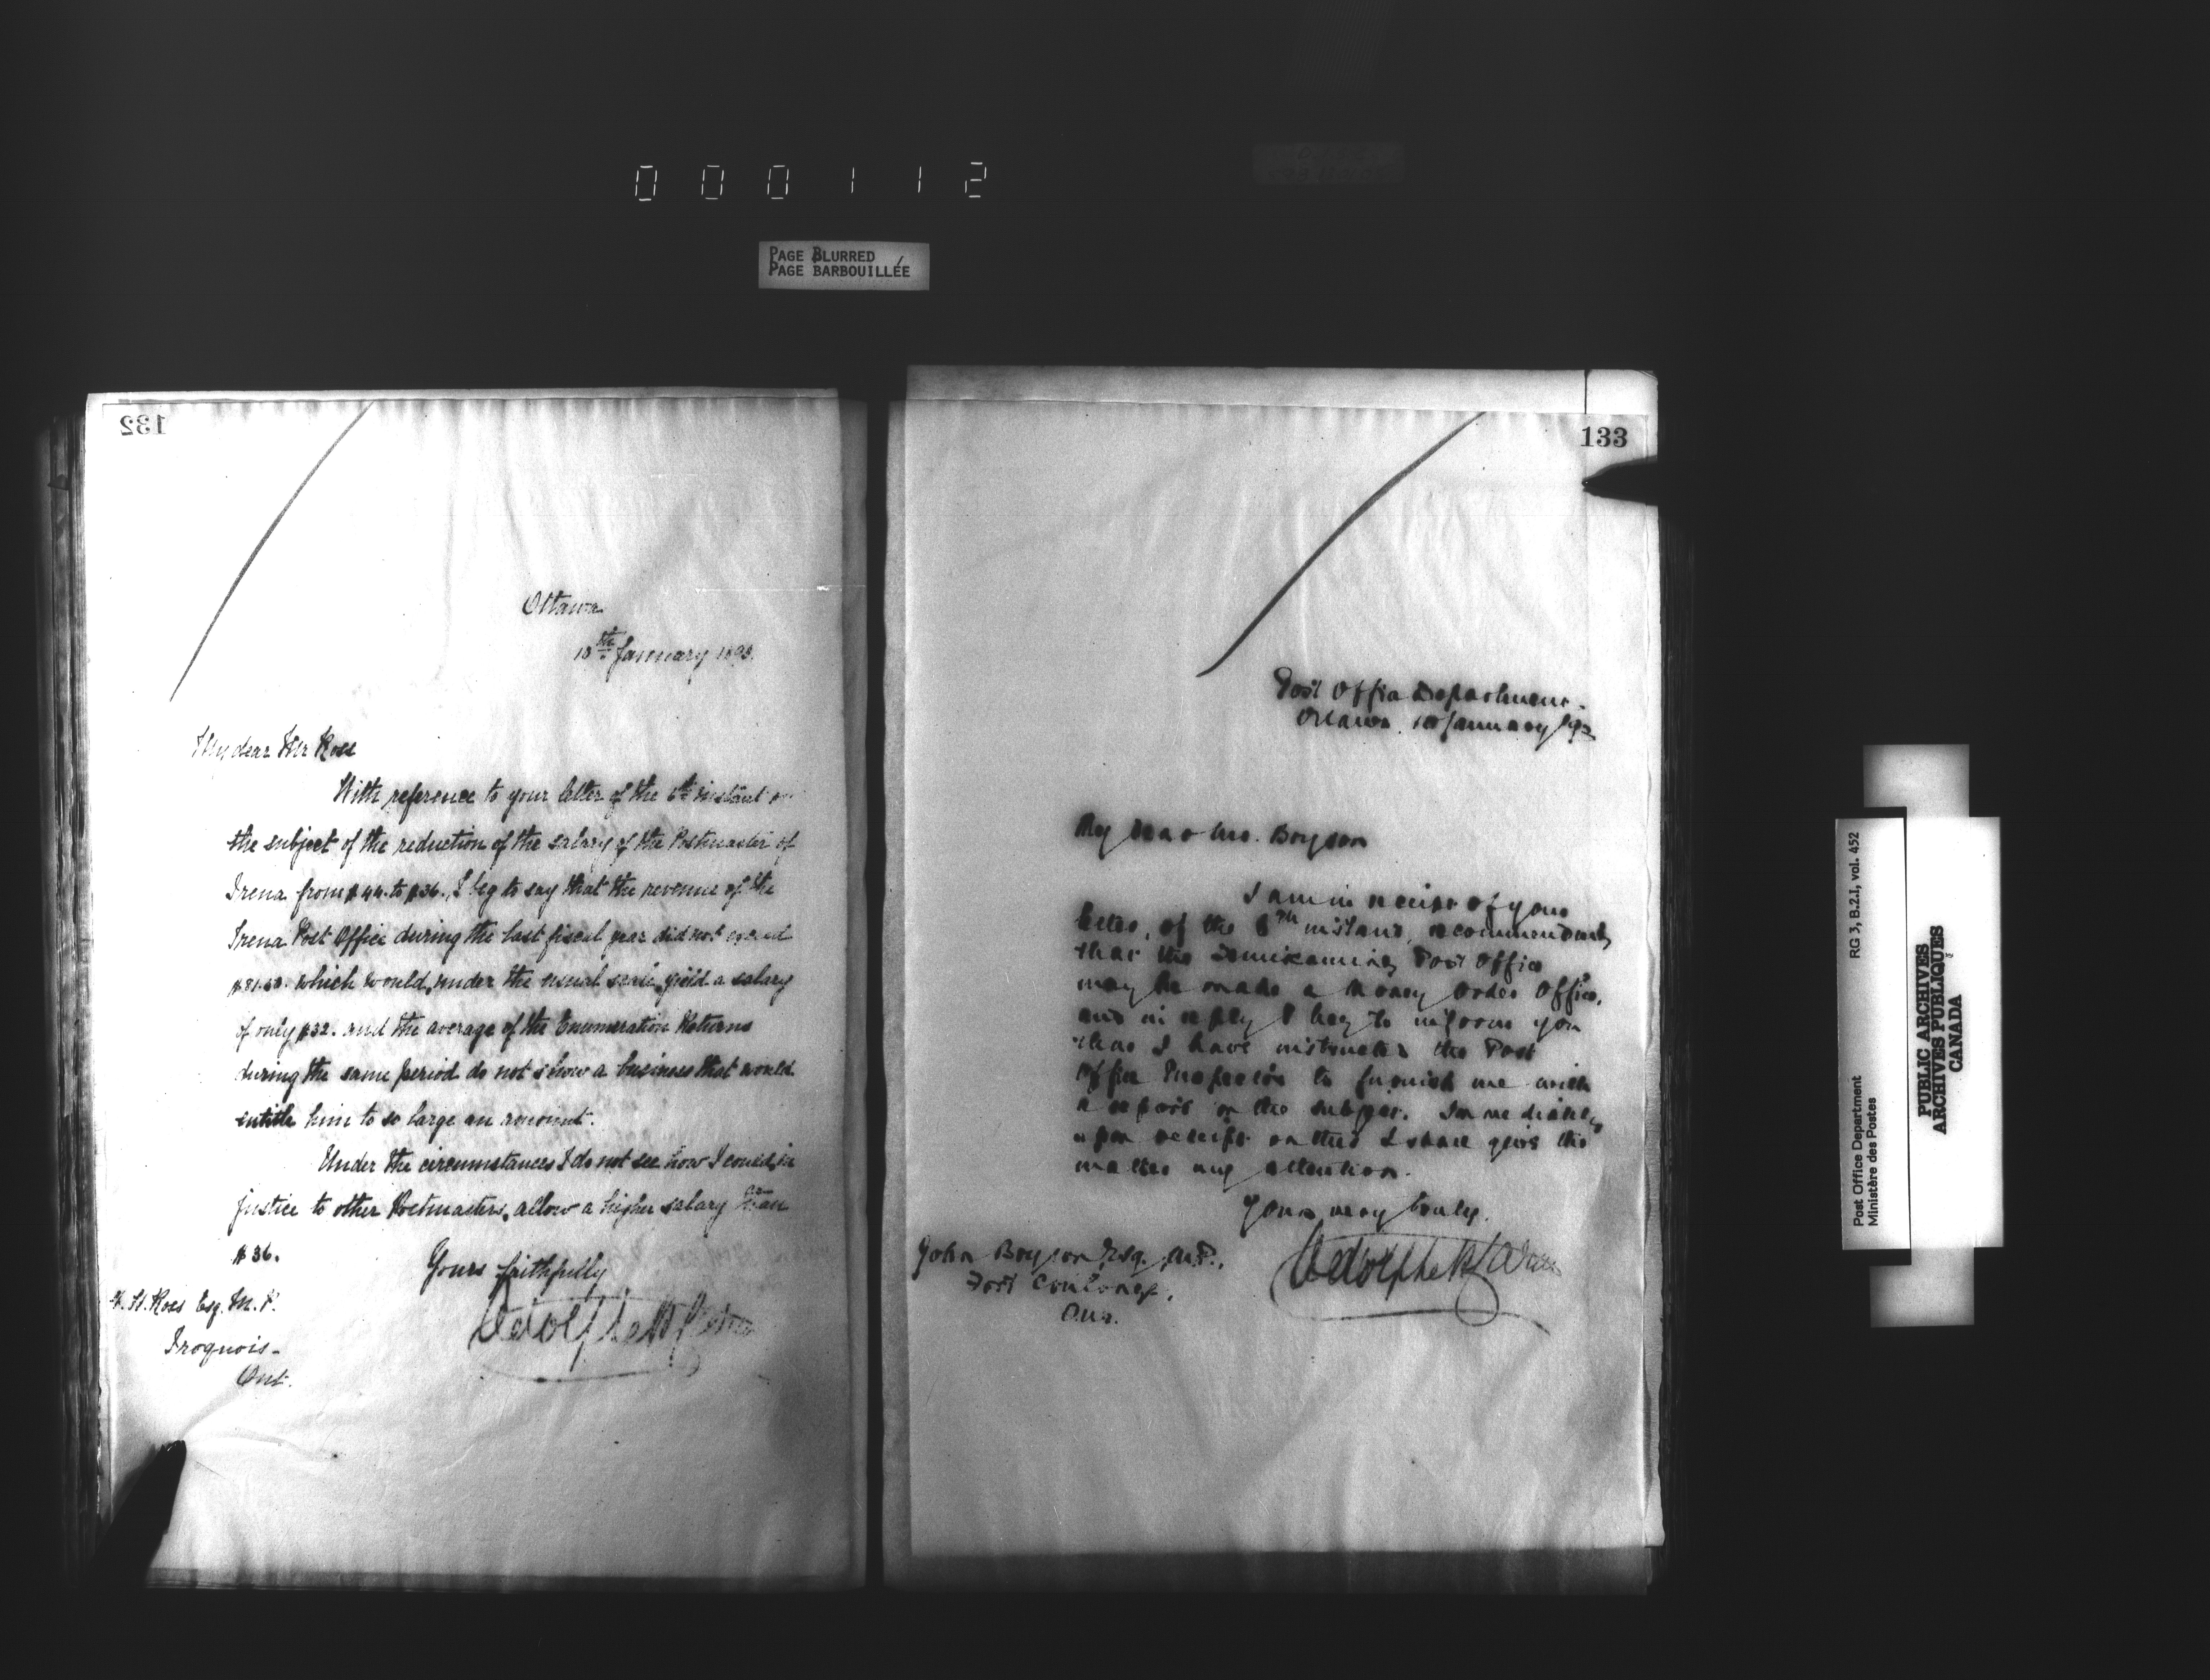 000112
PAGE BLURRED
PAGE BARBOUILLÉE
132
Ottawa
10th January 1893.
My dear Mr Ross
With reference to your letter of the 6th instant on
the subject of the reduction of the salary of the Postmaster of
Irena from $44. to $36., I beg to say that the revenue of the
Irena Post Office during the last fiscal year did not exceed
which would, under the usual scale, yield a salary
of only $32. and the average of the Enumeration Returns
during the same period do not show a business that would
entitle him to so large an amount.
Under the circumstances I do not see how I could, in
justice to other Postmasters, allow a higher salary than
$36.
Yours faithfully
H. Ross Esq. M.P.
Iroquois-
Ont.
Adolphe P. Caron
133
Post Office Department.
Ottawa. 10 January 1893
My dear Mr. Bryson
I am in receipt of your
letter, of the 6th instant, recommending
that the Temiscaming Post Office
may be made a Money Order Office,
and in reply I beg to inform you
that I have instructed the Post
Office Inspector to furnish me with
a report on the subject. Immediately
upon receipt of this I shall give the
matter my attention.
Yours very truly,
John Bryson, Esq. M.P.,
Fort Coulonge,
Que.
Adolphe P. Caron
RG 3, B.2.1, vol. 452
Post Office Department
Ministère des Postes
PUBLIC ARCHIVES
ARCHIVES PUBLIQUES
CANADA